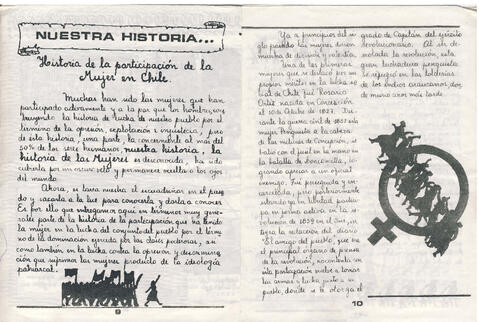 NUESTRA HISTORIA...
Historia de la participación de la
Mujer en Chile.
Muchas han sido las mujeres que han
participado activamente y a la par que los hombres, cons
truyendo la historia de lucha de nuestro pueblo por el
término de la opresión, explotación e injusticia, pero
de esta historia, una parte, la concerniente al más del
50% de los seres humanos nuestra historia, la
historia de las Mujeres es desconocida, ha sido
cubierta por un oscuro velo y permanece oculta a los ojos
del mundo.
Ahora, es tarea nuestra el
y sacarla a la luz para conocerla y darla a conocer.
Es por ello que entregamos aquí en términos muy gene-
rales parte de la historia de la participación que ha tenido
la mujer en la lucha del conjunto del pueblo por el térmi
no de la dominación ejercida por las clases poderosas, así
como también en la lucha contra la opresión y discrimina
ción que sufrimos las mujeres producto de la ideología
patriarcal.
9
Ya a principios del si
glo pasado las mujeres demos
traban de decisión y valentía
Una de las primeras
mujeres que se destacó por sus
propios méritos en la lucha so
cial de Chile fué Rosario
Ortiz nacida en Concepción
el 10 de Octubre de 1827. Du-
rante la guerra civil de 1851 esta
mujer penquista a la cabeza
de las milicias de Concepción, se
batió con el fusil en la mano en
la batalla de Loncomilla,
logrando apresar a un oficial
enemigo. Fué perseguida y en-
carcelada, pero posteriormente
estando ya en libertad partici
pa en forma activa en la re-
volución de 1859 en el Sur, in-
tegra la redacción del diario
"El amigo del pueblo", que era
el principal órgano de prensa
de la revolución,
esta participación vuelve a tomar
las armas a luchar junto a su
pueblo, donde se le otorga el
grado de Capitán del ejército
revolucionario. Al ser de-
rrotada la revolución, esta
gran luchadora penquista
se refugió en las tolderías
de los indios araucanos, don
de muere años más tarde.
10